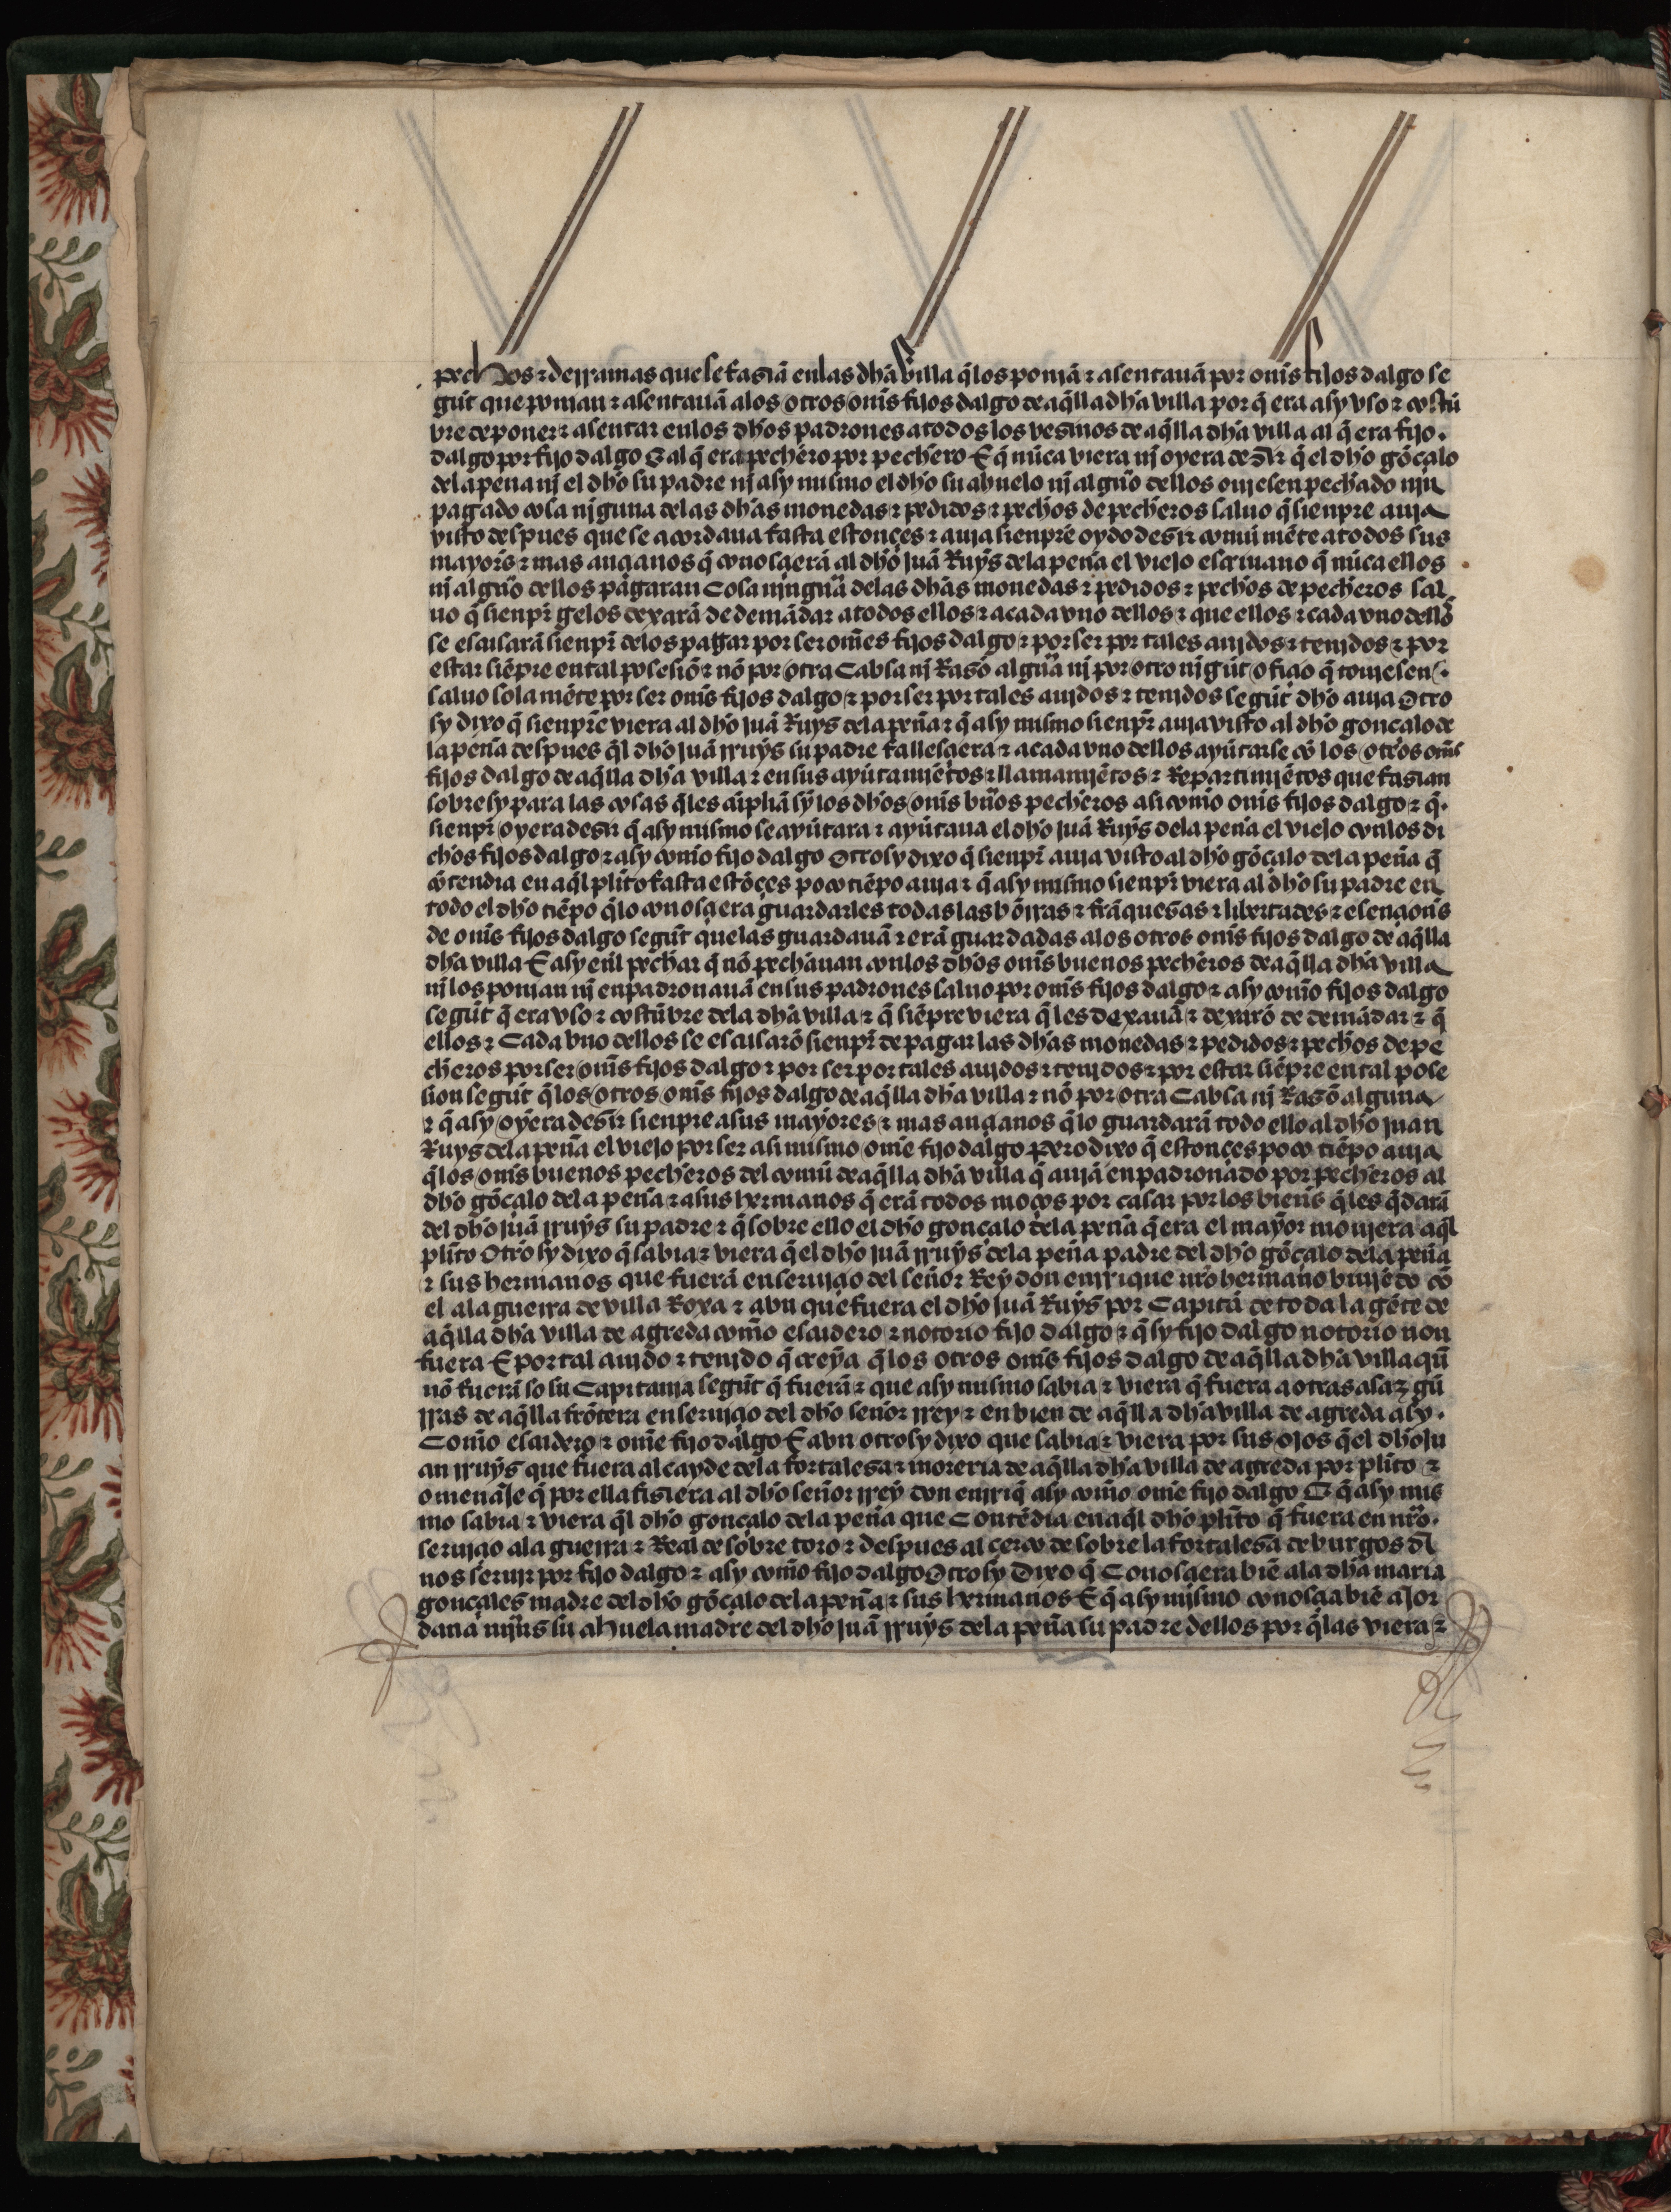 pechos ⁊ derramas que se fasiā en las dh̄a villa q̄ los poniā ⁊ asentauā por om̄s fijos dalgo se
gūt que ponian ⁊ asentauā a los otros om̄s fijos dalgo de aq̄lla dh̄a villa por q̄ era asy vso ⁊ costū
bre de poner ⁊ asentar en los dh̄os padrones a todos los vesinos de aq̄lla dh̄a villa al q̄ era fijo
dalgo por fijo dalgo E al q̄ era pechero por pechero E q̄ nūca viera nj oyera desir q̄ el dh̄o gōçalo
de la peña nj el dh̄o su padre nj asy mismo el dh̄o su abuelo nj algūo dellos oujesen pechado njn
pagado cosa njguna de las dh̄as monedas ⁊ pedidos ⁊ pechos de pecheros saluo q̄ sienpre auja
visto despues que se acordaua fasta estonçes ⁊ auja sienpre oydo desir comūmēte a todos sus
mayores ⁊ mas ançianos q̄ conosçierā al dh̄o juā Ruys de la peña el viejo escriuano q̄ nūca ellos
nj algūo dellos pagaran Cosa njnguā de las dh̄as monedas ⁊ pedidos ⁊ pechos de pecheros sal
uo q̄ sienpr̄ gelos dexarā de demādar a todos ellos ⁊ a cada vno dellos ⁊ que ellos ⁊ cada vno dellos
se escusarā sienpr̄ de los pagar por ser om̄es fijos dalgo ⁊ por ser por tales aujdos ⁊ tenjdos ⁊ por
estar siēpre en tal posesiō ⁊ nō por otra Cabsa nj Rasō algūa nj por otro nigūt ofiçio q̄ toujesen
saluo sola mēte por ser om̄s fijos dalgo ⁊ por ser por tales aujdos ⁊ tenjdos segūt dh̄o auja Otro
sy dixo q̄ sienpre viera al dh̄o juā Ruys de la peña ⁊ q̄ asy mismo sienpr̄ auja visto al dh̄o gonçalo de
la peña despues q̄l dh̄o juā rruys su padre fallesçiera ⁊ a cada vno dellos ayūtarse cō los otros om̄s
fijos dalgo de aq̄lla dh̄a villa ⁊ en sus ayūtamjētos ⁊ llamamjētos ⁊ Repartimjētos que fasian
sobre sy para las cosas q̄ les sin los dh̄os om̄s būos pecheros asi com̄o om̄s fijos dalgo ⁊ q̄
sienpr̄ oyera desir q̄ asy mismo se ayūtara ⁊ ayūtaua el dh̄o juā Ruys de la peña el viejo con los di
chos fijos dalgo ⁊ asy com̄o fijo dalgo Otrosy dixo q̄ sienpr̄ auja visto al dh̄o gōçalo de la peña q̄
cōtendia en aq̄l plito fasta estōçes poco tiēpo auja ⁊ q̄ asy mismo sienpr̄ viera al dh̄o su padre en
todo el dh̄o tiēpo q̄ lo conosçiera guardarles todas las hōrras ⁊ frāquesas ⁊ libertades ⁊ esençion̄s
de om̄s fijos dalgo segūt que las guardauā ⁊ erā guardadas a los otros om̄s fijos dalgo de aq̄lla
dh̄a villa E asy en̄l pechar q̄ nō pechauan con los dh̄os om̄s buenos pecheros de aq̄lla dh̄a villa
nj los ponian nj enpadronauā en sus padrones saluo por om̄s fijos dalgo ⁊ asy com̄o fijos dalgo
segūt q̄ era vso ⁊ costūbre de la dh̄a villa ⁊ q̄ siēpre viera q̄ les dexauā ⁊ dexarō de demādar ⁊ q̄
ellos ⁊ Cada vno dellos se escusarō sienpr̄ de pagar las dh̄as monedas ⁊ pedidos ⁊ pechos de pe
cheros por ser om̄s fijos dalgo ⁊ por ser por tales aujdos ⁊ tenjdos ⁊ por estar siēpre en tal pose
sion segūt q̄ los otros om̄s fijos dalgo de aq̄lla dh̄a villa ⁊ nō por otra Cabsa nj Rasō alguna
⁊ q̄ asy oyera desir sienpre a sus mayores ⁊ mas ançianos q̄ lo guardarā todo ello al dh̄o juan
Ruys de la peña el viejo por ser asi mismo om̄e fijo dalgo pero dixo q̄ estonçes poco tiēpo auja
q̄ los om̄s buenos pecheros del comū de aq̄lla dh̄a villa q̄ aujā enpadronado por pecheros al
dh̄o gōçalo de la peña ⁊ a sus hermanos q̄ erā todos moços por casar por los bien̄s q̄ les q̄darā
del dh̄o juā rruys su padre ⁊ q̄ sobre ello el dh̄o gonçalo de la peña q̄ era el mayor moujera aq̄l
plito Otrosy dixo q̄ sabia ⁊ viera q̄ el dh̄o juā rruys de la peña padre del dh̄o gōçalo de la peña
⁊ sus hermanos que fuerā en serujçio del señor Rey don enrrique nr̄o hermano biujēdo cō
el a la guerra de villa Roya ⁊ abn que fuera el dh̄o juā Ruys por Capitā de toda la gēte de
aq̄lla dh̄a villa de agreda com̄o escudero ⁊ notorio fijo dalgo ⁊ q̄ sy fijo dalgo notorio non
fuera E por tal aujdo ⁊ tenjdo q̄ creya q̄ los otros om̄s fijos dalgo de aq̄lla dh̄a villa q̄
nō fuerā so su Capitanja segūt q̄ fuerā ⁊ que asy mismo sabia ⁊ viera q̄ fuera a otras asaz gue
rras de aq̄lla frōtera en serujçio del dh̄o señor rrey ⁊ en bien de aq̄lla dh̄a villa de agreda asy
Com̄o escudero ⁊ om̄e fijo dalgo E abn otrosy dixo que sabia ⁊ viera por sus ojos q̄ el dh̄o ju
an rruys que fuera alcayde de la fortalesa ⁊ moreria de aq̄lla dh̄a villa de agreda por plito ⁊
omenāje q̄ por ella fisiera al dh̄o señor rrey don enrriq̄ asy com̄o om̄e fijo dalgo E q̄ asy mis
mo sabia ⁊ viera q̄l dh̄o gonçalo de la peña que Contēdia en aq̄l dh̄o plito q̄ fuera en nr̄o
serujçio a la guerra ⁊ Real de sobre toro ⁊ despues al çerco de sobre la fortalesa de burgos a
nos serujr por fijo dalgo ⁊ asy com̄o fijo dalgo Otrosy Dixo q̄ Conosçiera biē a la dh̄a maria
gonçales madre del dh̄o gōçalo de la peña ⁊ sus hermanos E q̄ asy mjsmo conosçia biē a jor
dana su ahuela madre del dh̄o juā rruys de la peña su padre dellos por q̄ las viera ⁊